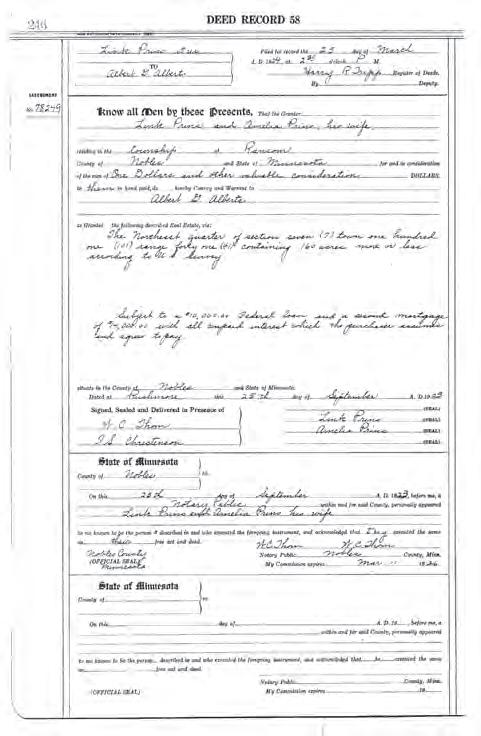 246
DEED RECORD 58
Link Prins et ux
TO
Albert G. Alberts
Filed for record the 25 day of March
A. D. 1924 at 2 o'clock P. M.
Harry R. Tripp Register of Deeds.
By Deputy.
No. 78249
Know all Men by these Presents, That the Grantor
Link Prins and Amelia Prins, his wife,
residing in the township of Ransom
County of Nobles and State of Minnesota for and in consideration
of the sum of One Dollars and other valuable consideration DOLLARS,
to them in hand paid, do hereby Convey and Warrant to
Albert G. Alberts
as Grantee the following described Real Estate, viz:
The Northeast quarter of section seven (7) town one hundred
one (101) range forty one (41) containing 160 acres more or less
according to U.S. Survey
Subject to a $10,000.00 Federal loan and a second mortgage
of $4,000.00 with all unpaid interest which the purchaser assumes
and agree to pay.
situate in the County of Nobles and State of Minnesota.
Dated at Rushmore this 25th day of September A. D. 1923
Signed, Sealed and Delivered in Presence of
W. C. Thom
Link Prins (SEAL)
Amelia Prins (SEAL)
(SEAL)
(SEAL)
Christenson
State of Minnesota
County of Nobles ss.
On this 25th day of September A. D. 1923, before me, a
Notary Public within and for said County, personally appeared
Link Prins and Amelia Prins his wife
to me known to be the person s described in and who executed the foregoing instrument, and acknowledged that they executed the same
as their free act and deed.
W.C. Thom W.C. Thom
Nobles County
Notary Public Nobles County, Minn.
(OFFICIAL SEAL)
Minnesota
My Commission expires Mar 11 1926
State of Minnesota
County of ss.
On this day of A. D. 19 , before me, a
within and for said County, personally appeared
to me known to be the person described in and who executed the foregoing instrument, and acknowledged that he executed the same
as free act and deed.
Notary Public County, Minn.
(OFFICIAL SEAL)
My Commission expires 19